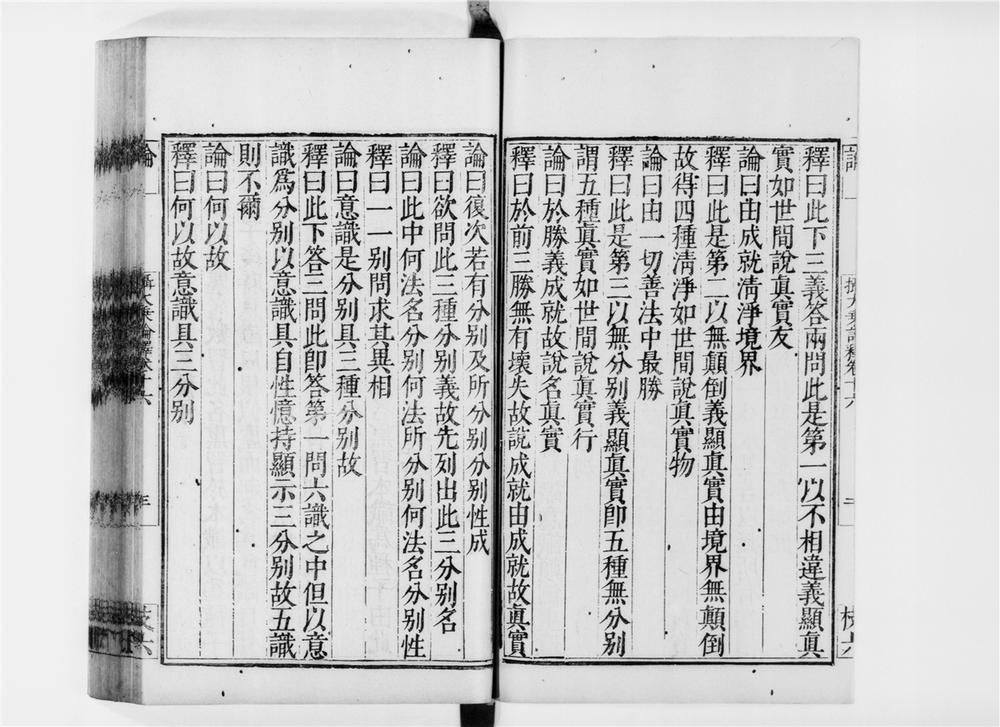 釋曰此下三義答兩問此是第一以不相違義顯真
實如世間說真實友
論曰由成就清淨境界
釋曰此是第二以無顛倒義顯真實由境界無顛倒
故得四種清淨如世間說真實物
論曰由一切善法中最勝
釋曰此是第三以無分別義顯真實即五種無分別
謂五種真實如世間說真實行
論曰於勝義成就故說名真實
釋曰於前三勝無有壞失故說成就由成就故真實
論曰復次若有分別及所分別分別性成
釋曰欲問此三種分別義故先列出此三分別名
論曰此中何法名分別何法所分別何法名分別性
釋曰一一別問求其異相
論曰意識是分別具三種分別故
釋曰此下答三問此即答第一問六識之中但以意
識為分別以意識具自性憶持顯示三分別故五識
則不爾
論曰何以故
釋曰何以故意識具三分別
論一
攝大乘論釋卷十六